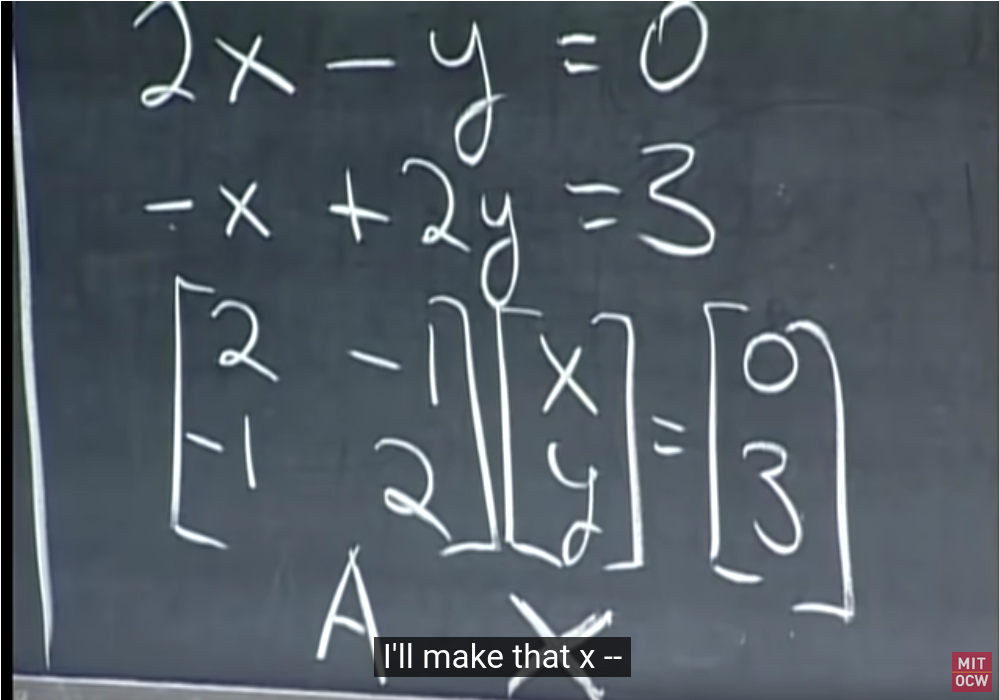 2x - y = 0
-x + 2y = 3
[2 -1] [x] = [0]
[-1 2] [y] [3]
A X
I'll make that x --
MIT
OCW